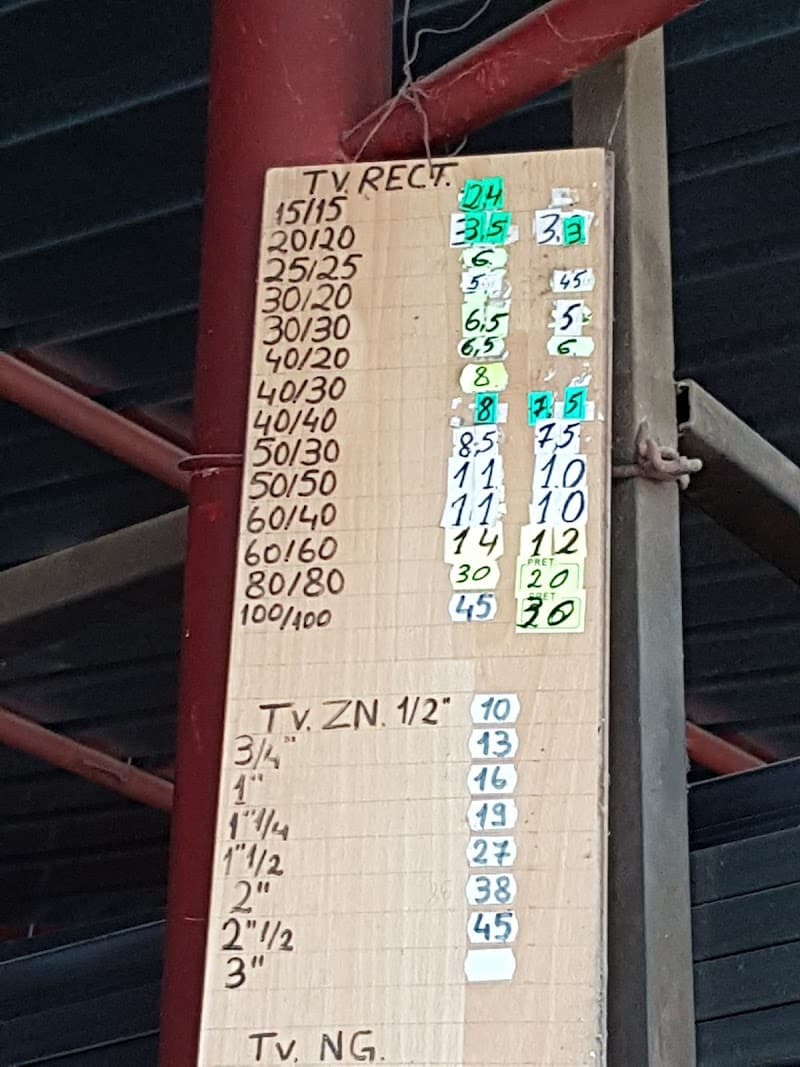 TV. RECT.
15/15 2,4
20/20 3,5 3,3
25/25 6
30/20 5 45
30/30 6,5 5
40/20 6,5 6
40/30 8
40/40 8 7 5
50/30 8,5 75
50/50 11 10
60/40 11 10
60/60 14 12
80/80 30 PRET 20
100/100 45 PRET 30
TV. ZN. 1/2" 10
3/4" 13
1" 16
1"1/4 19
1"1/2 27
2" 38
2"1/2 45
3"
TV. NG.